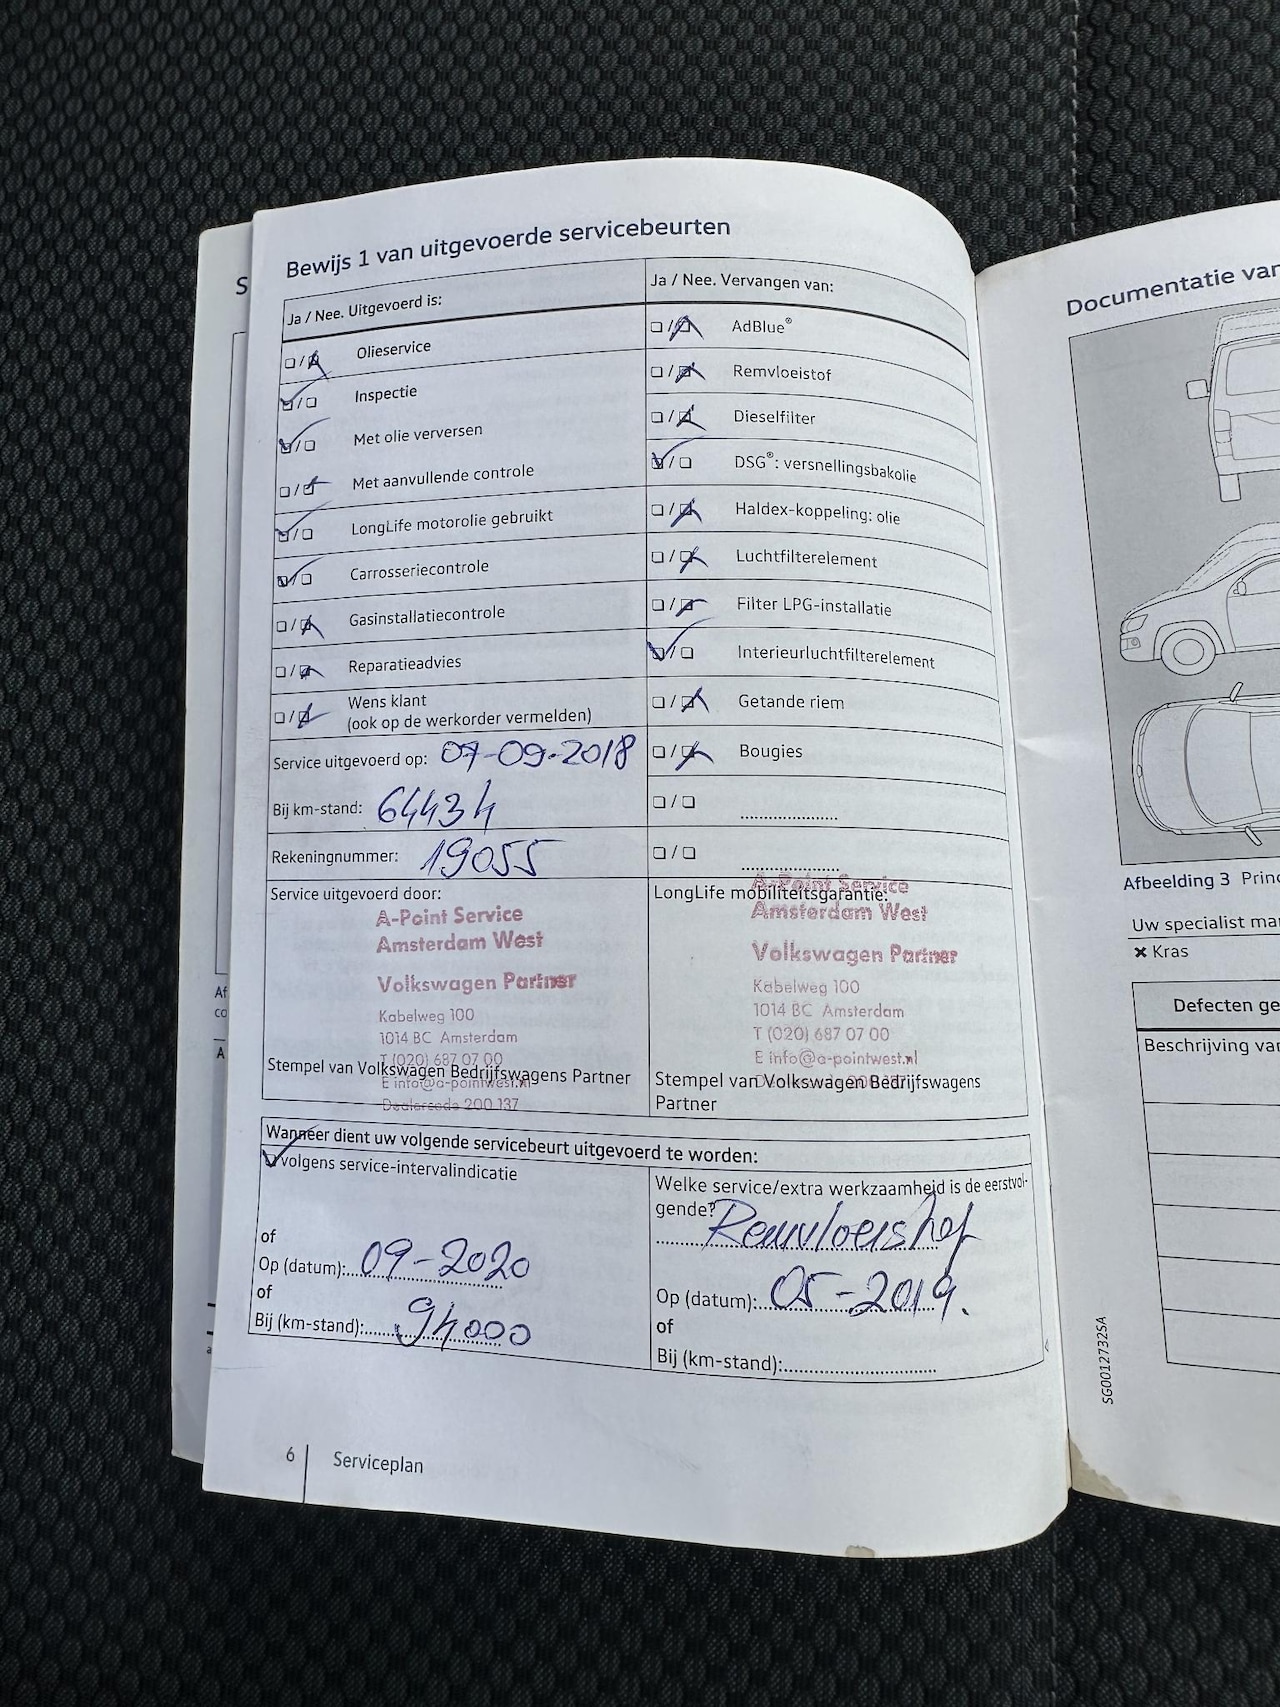 Bewijs 1 van uitgevoerde servicebeurten
Ja / Nee. Uitgevoerd is:
Olieservice
Inspectie
Met olie verversen
Met aanvullende controle
LongLife motorolie gebruikt
Carrosseriecontrole
Gasinstallatiecontrole
Reparatieadvies
Wens klant
(ook op de werkorder vermelden)
Service uitgevoerd op: 07-09-2018
Bij km-stand: 64434
Rekeningnummer: 19055
Service uitgevoerd door:
A-Point Service
Amsterdam West
Volkswagen Partner
Kabelweg 100
1014 BC Amsterdam
T (020) 687 07 00
E info@a-pointwest.nl
Dealercode 200.137
Stempel van Volkswagen Bedrijfswagens Partner
Ja / Nee. Vervangen van:
AdBlue®
Remvloeistof
Dieselfilter
DSG®: versnellingsbakolie
Haldex-koppeling: olie
Luchtfilterelement
Filter LPG-installatie
Interieurluchtfilterelement
Getande riem
Bougies
LongLife mobiliteitsgarantie:
A-Point Service
Amsterdam West
Volkswagen Partner
Kabelweg 100
1014 BC Amsterdam
T (020) 687 07 00
E info@a-pointwest.nl
Stempel van Volkswagen Bedrijfswagens
Partner
Wanneer dient uw volgende servicebeurt uitgevoerd te worden:
volgens service-intervalindicatie
of
Op (datum): 09-2020
of
Bij (km-stand): 94000
Welke service/extra werkzaamheid is de eerstvol-
gende?
Remvloeistof
Op (datum): 05-2019.
of
Bij (km-stand):
6 Serviceplan
S
Af
co
A
Documentatie van
Afbeelding 3 Princ
Uw specialist mar
✖ Kras
Defecten ge
Beschrijving van
SG0012732SA